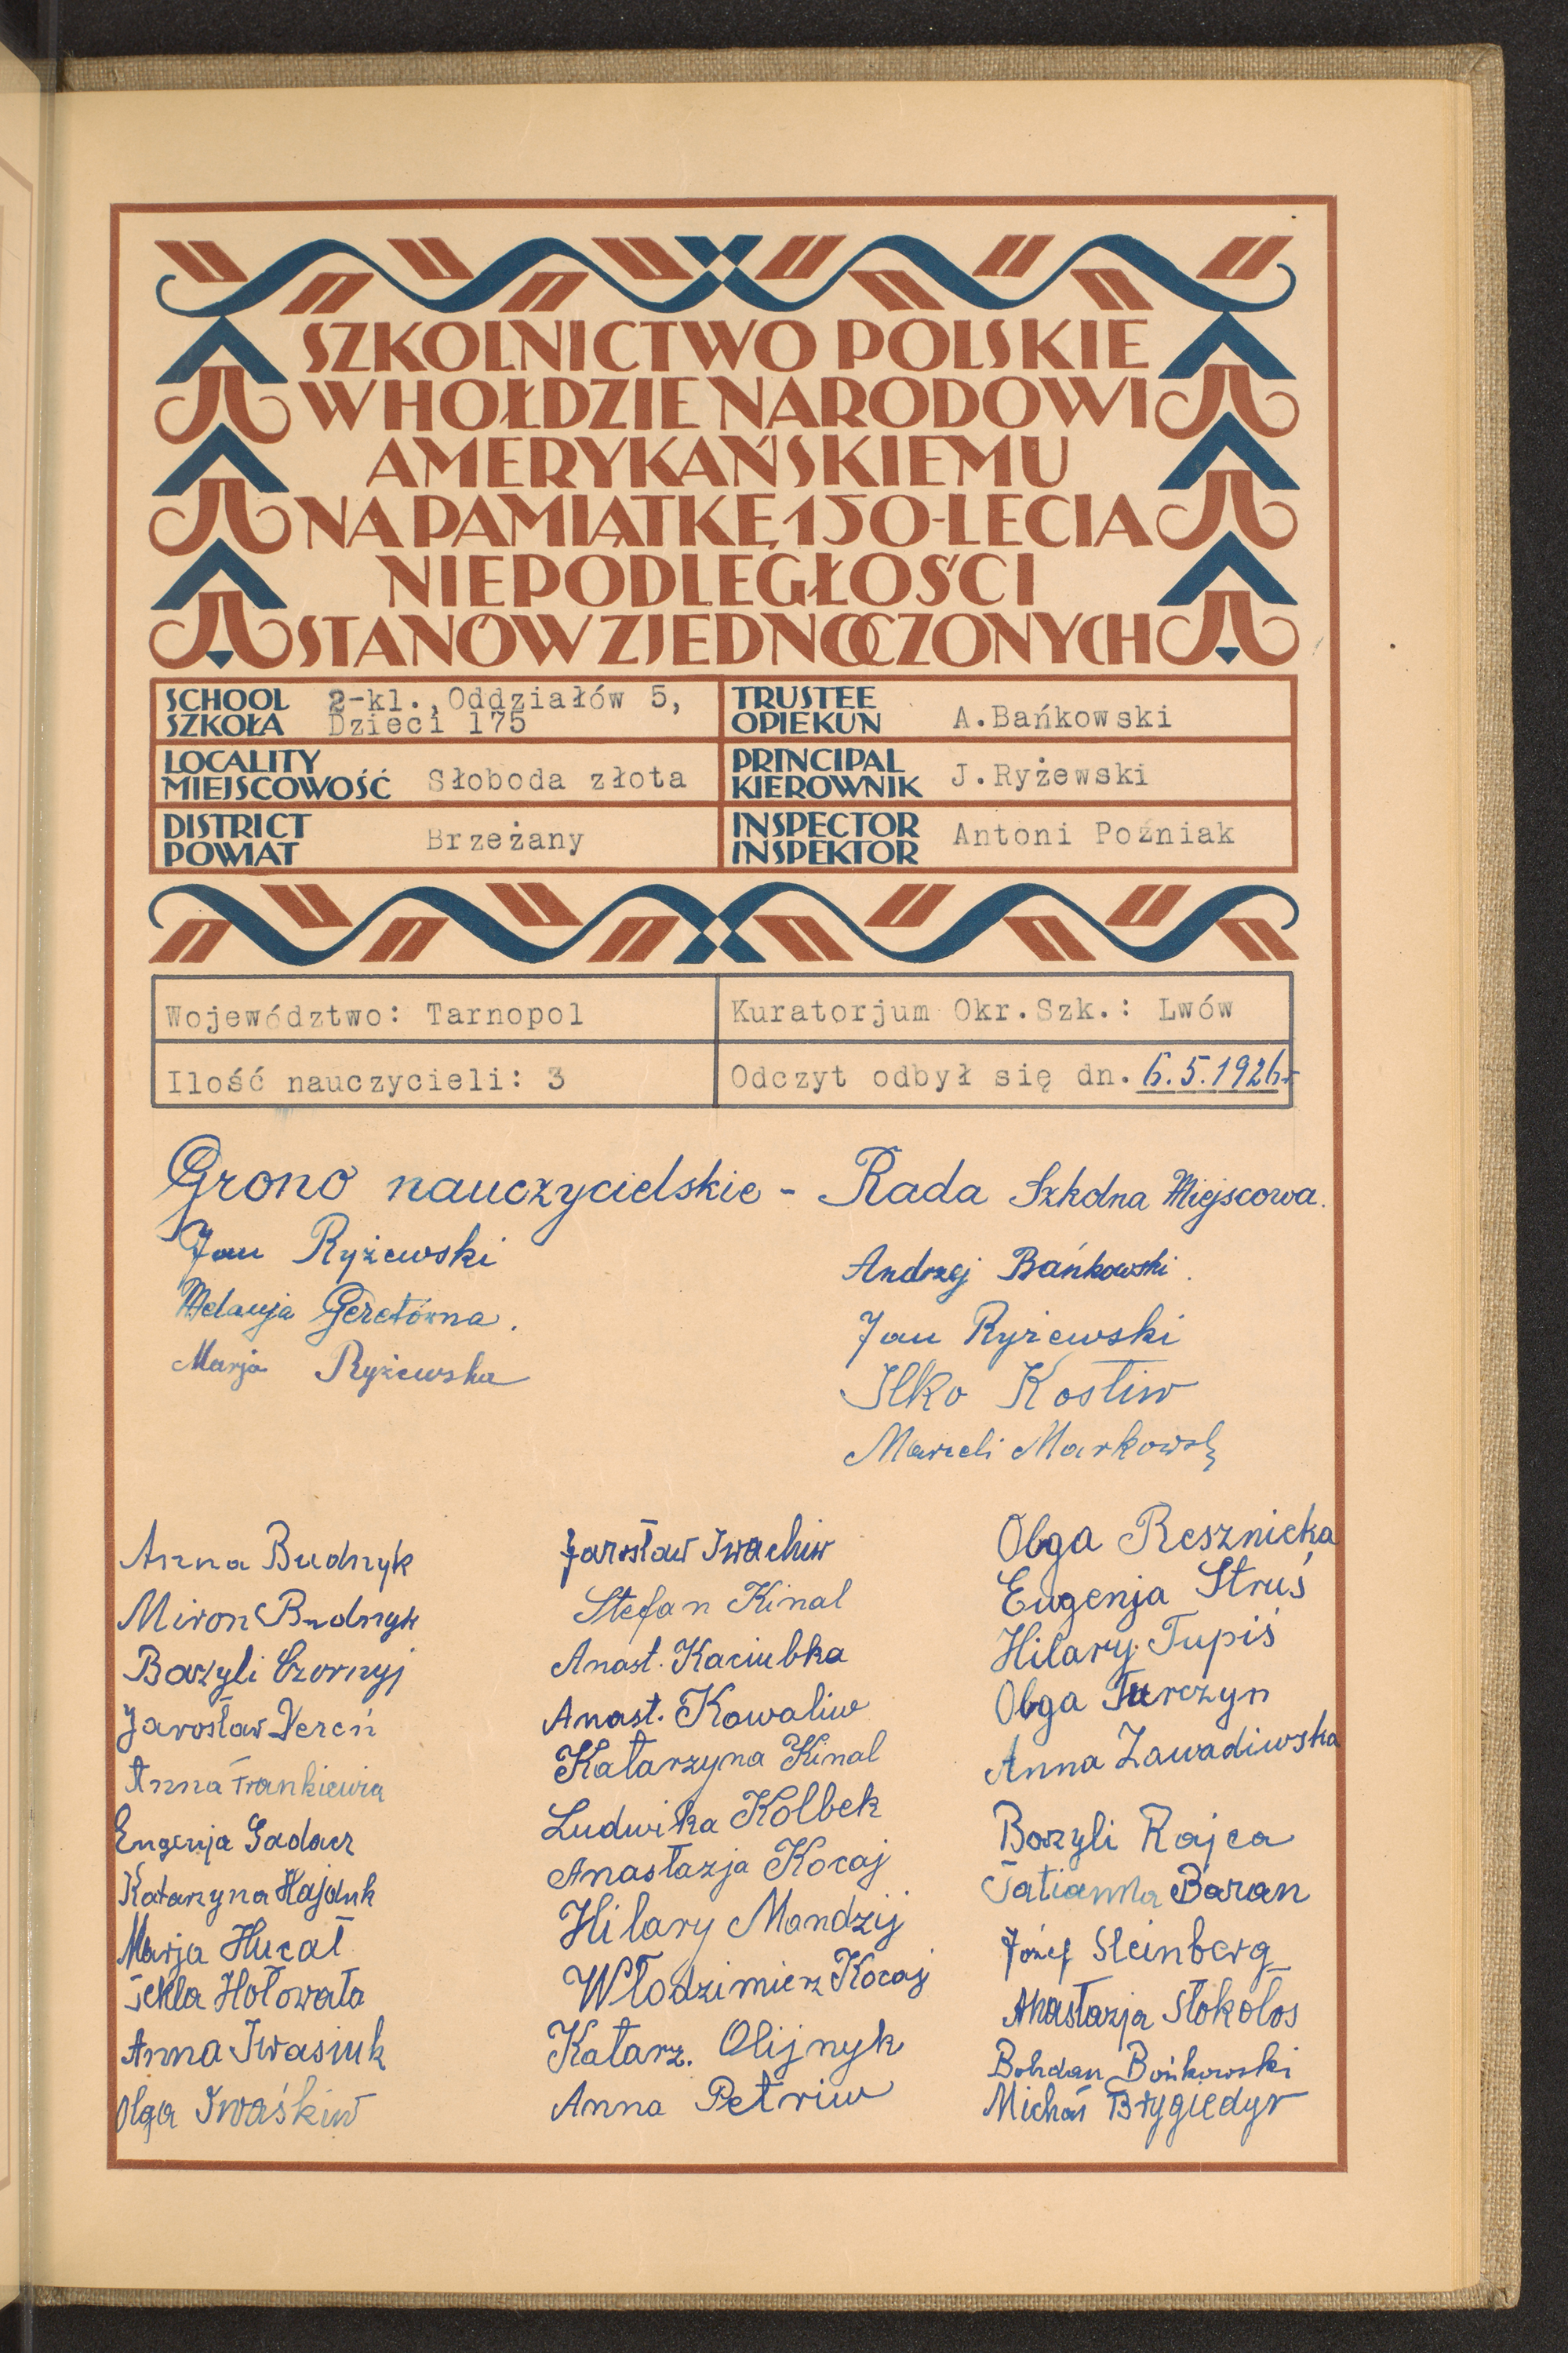 SZKOLNICTWO POLSKIE
W HOŁDZIE NARODOWI
AMERYKAŃSKIEMU
NA PAMIĄTKĘ 150-LECIA
NIEPODLEGŁOŚCI
STANÓW ZJEDNOCZONYCH
SCHOOL
SZKOŁA
2-kl., Oddziałów 5,
Dzieci 175
TRUSTEE
OPIEKUN
A.Bańkowski
LOCALITY
MIEJSCOWOŚĆ
Słoboda złota
PRINCIPAL
KIEROWNIK
J.Ryżewski
DISTRICT
POWIAT
Brzeżany
INSPECTOR
INSPEKTOR
Antoni Poźniak
Województwo: Tarnopol
Kuratorjum Okr.Szk.: Lwów
Ilość nauczycieli: 3
Odczyt odbył się dn. 6.5.1926r
Grono nauczycielskie - Rada Szkolna Miejscowa.
Jan Ryżewski
Melanja Geretówna.
Marja Ryżewska
Andrzej Bańkowski.
Jan Ryżewski
Ilko Kostiw
Marceli Markowski
Anna Budnyk
Miron Budnyk
Bazyli Czornyj
Jarosław Dereń
Anna Frankiewicz
Eugenja Gadacz
Katarzyna Hajduk
Marja Hucał
Tekla Hołowata
Anna Iwasiuk
Olga Iwaśkiw
Jarosław Iwachiw
Stefan Kinal
Anast. Kaciubka
Anast. Kowaliw
Katarzyna Kinal
Ludwika Kolbek
Anastazja Kocaj
Hilary Mandzij
Włodzimierz Kocaj
Katarz. Olijnyk
Anna Petriw
Olga Resznicka
Eugenja Struś
Hilary Tupiś
Olga Turczyn
Anna Zawadiwska
Bazyli Rajca
Tatianna Baran
Józef Steinberg
Anastazja Stokołos
Bohdan Bańkowski
Michaś Brygiedyr